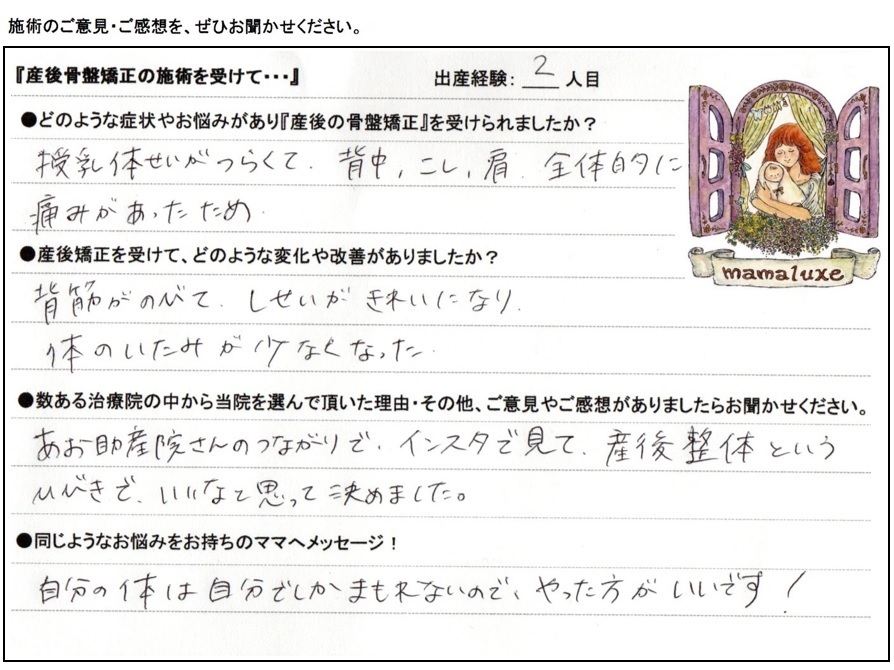 施術のご意見・ご感想を、ぜひお聞かせください。
『産後骨盤矯正の施術を受けて・・・』 出産経験： 2 人目
●どのような症状やお悩みがあり『産後の骨盤矯正』を受けられましたか？
授乳体せいがつらくて、背中、こし、肩、全体的に
痛みがあったため
●産後矯正を受けて、どのような変化や改善がありましたか？
背筋がのびて、しせいがきれいになり、
体のいたみが少なくなった
●数ある治療院の中から当院を選んで頂いた理由・その他、ご意見やご感想がありましたらお聞かせください。
あお助産院さんのつながりで、インスタで見て、産後整体という
ひびきで、いいなと思って決めました。
●同じようなお悩みをお持ちのママへメッセージ！
自分の体は自分でしかまもれないので、やった方がいいです！
mamaluxe